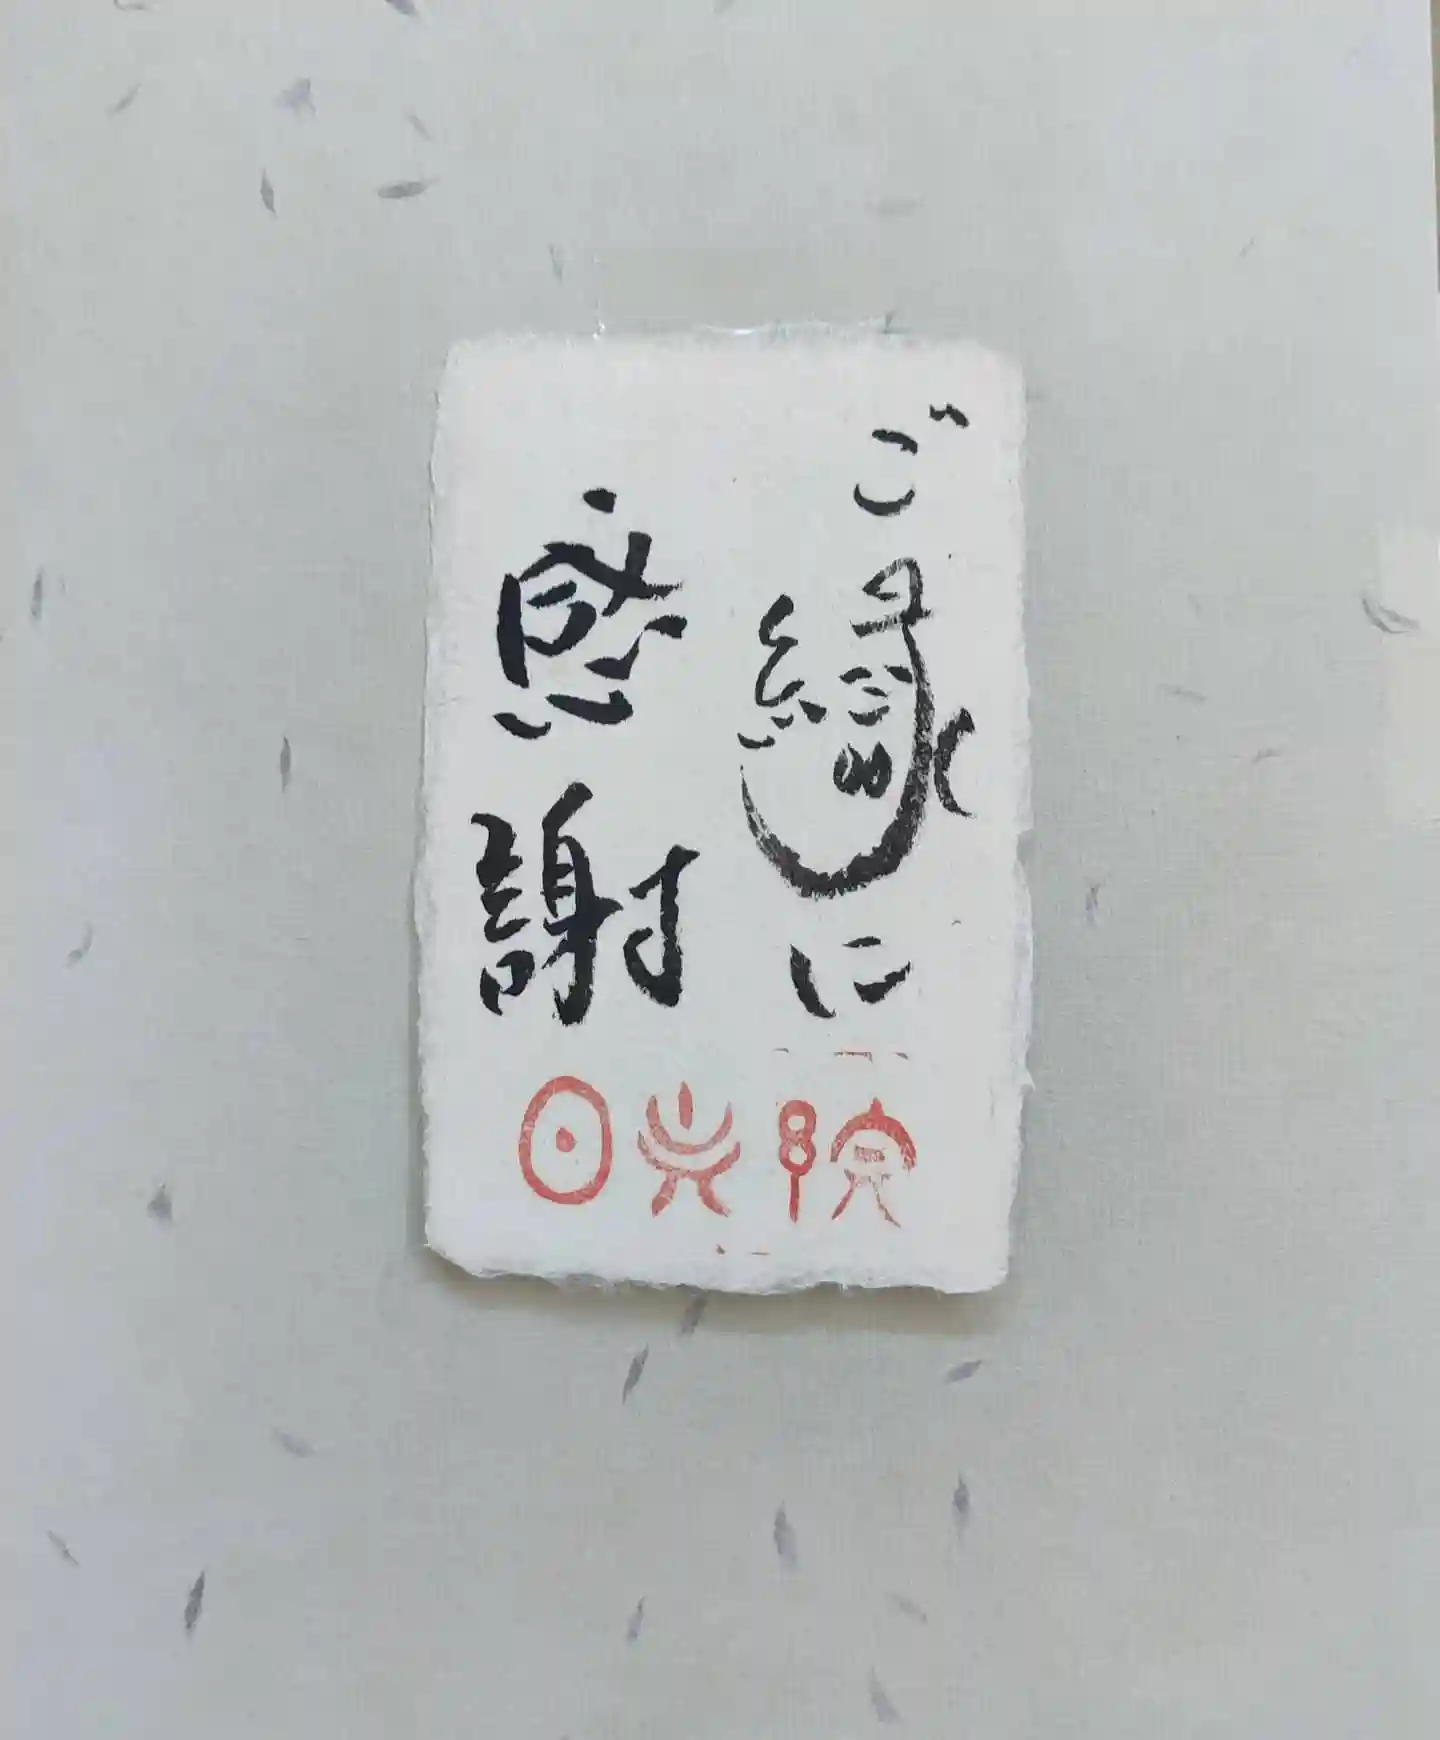 ご縁に
感謝
日光院